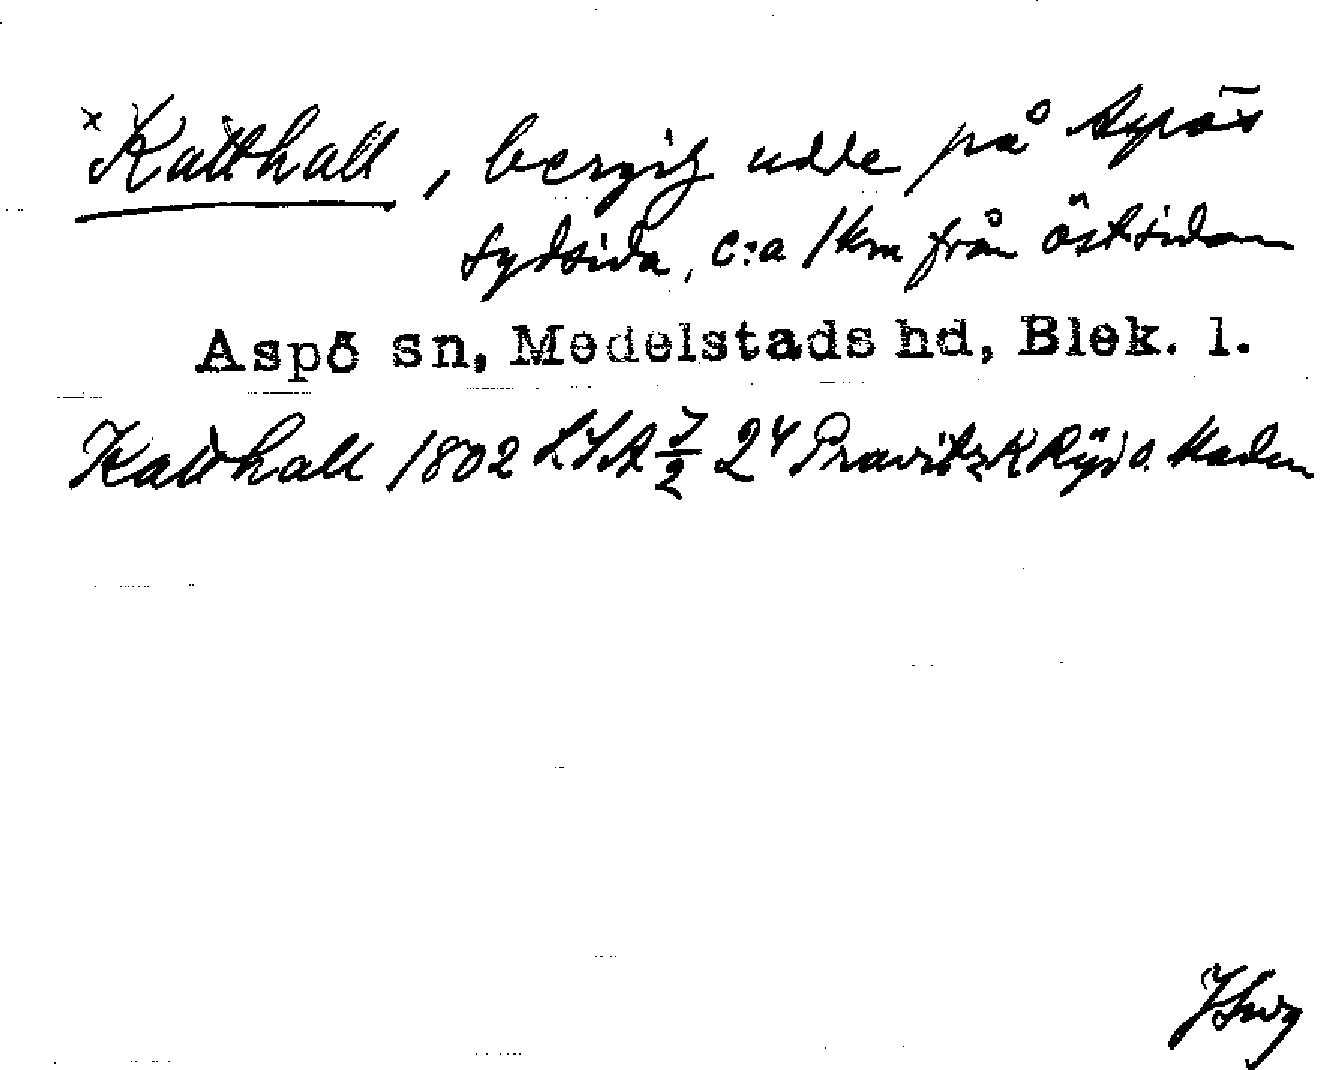 × Katthall, bergig udde på Aspös
sydsida, c:a 1 km från östsidan
Aspö sn, Medelstads hd, Blek. l.
Katthall 1802 LSA 24